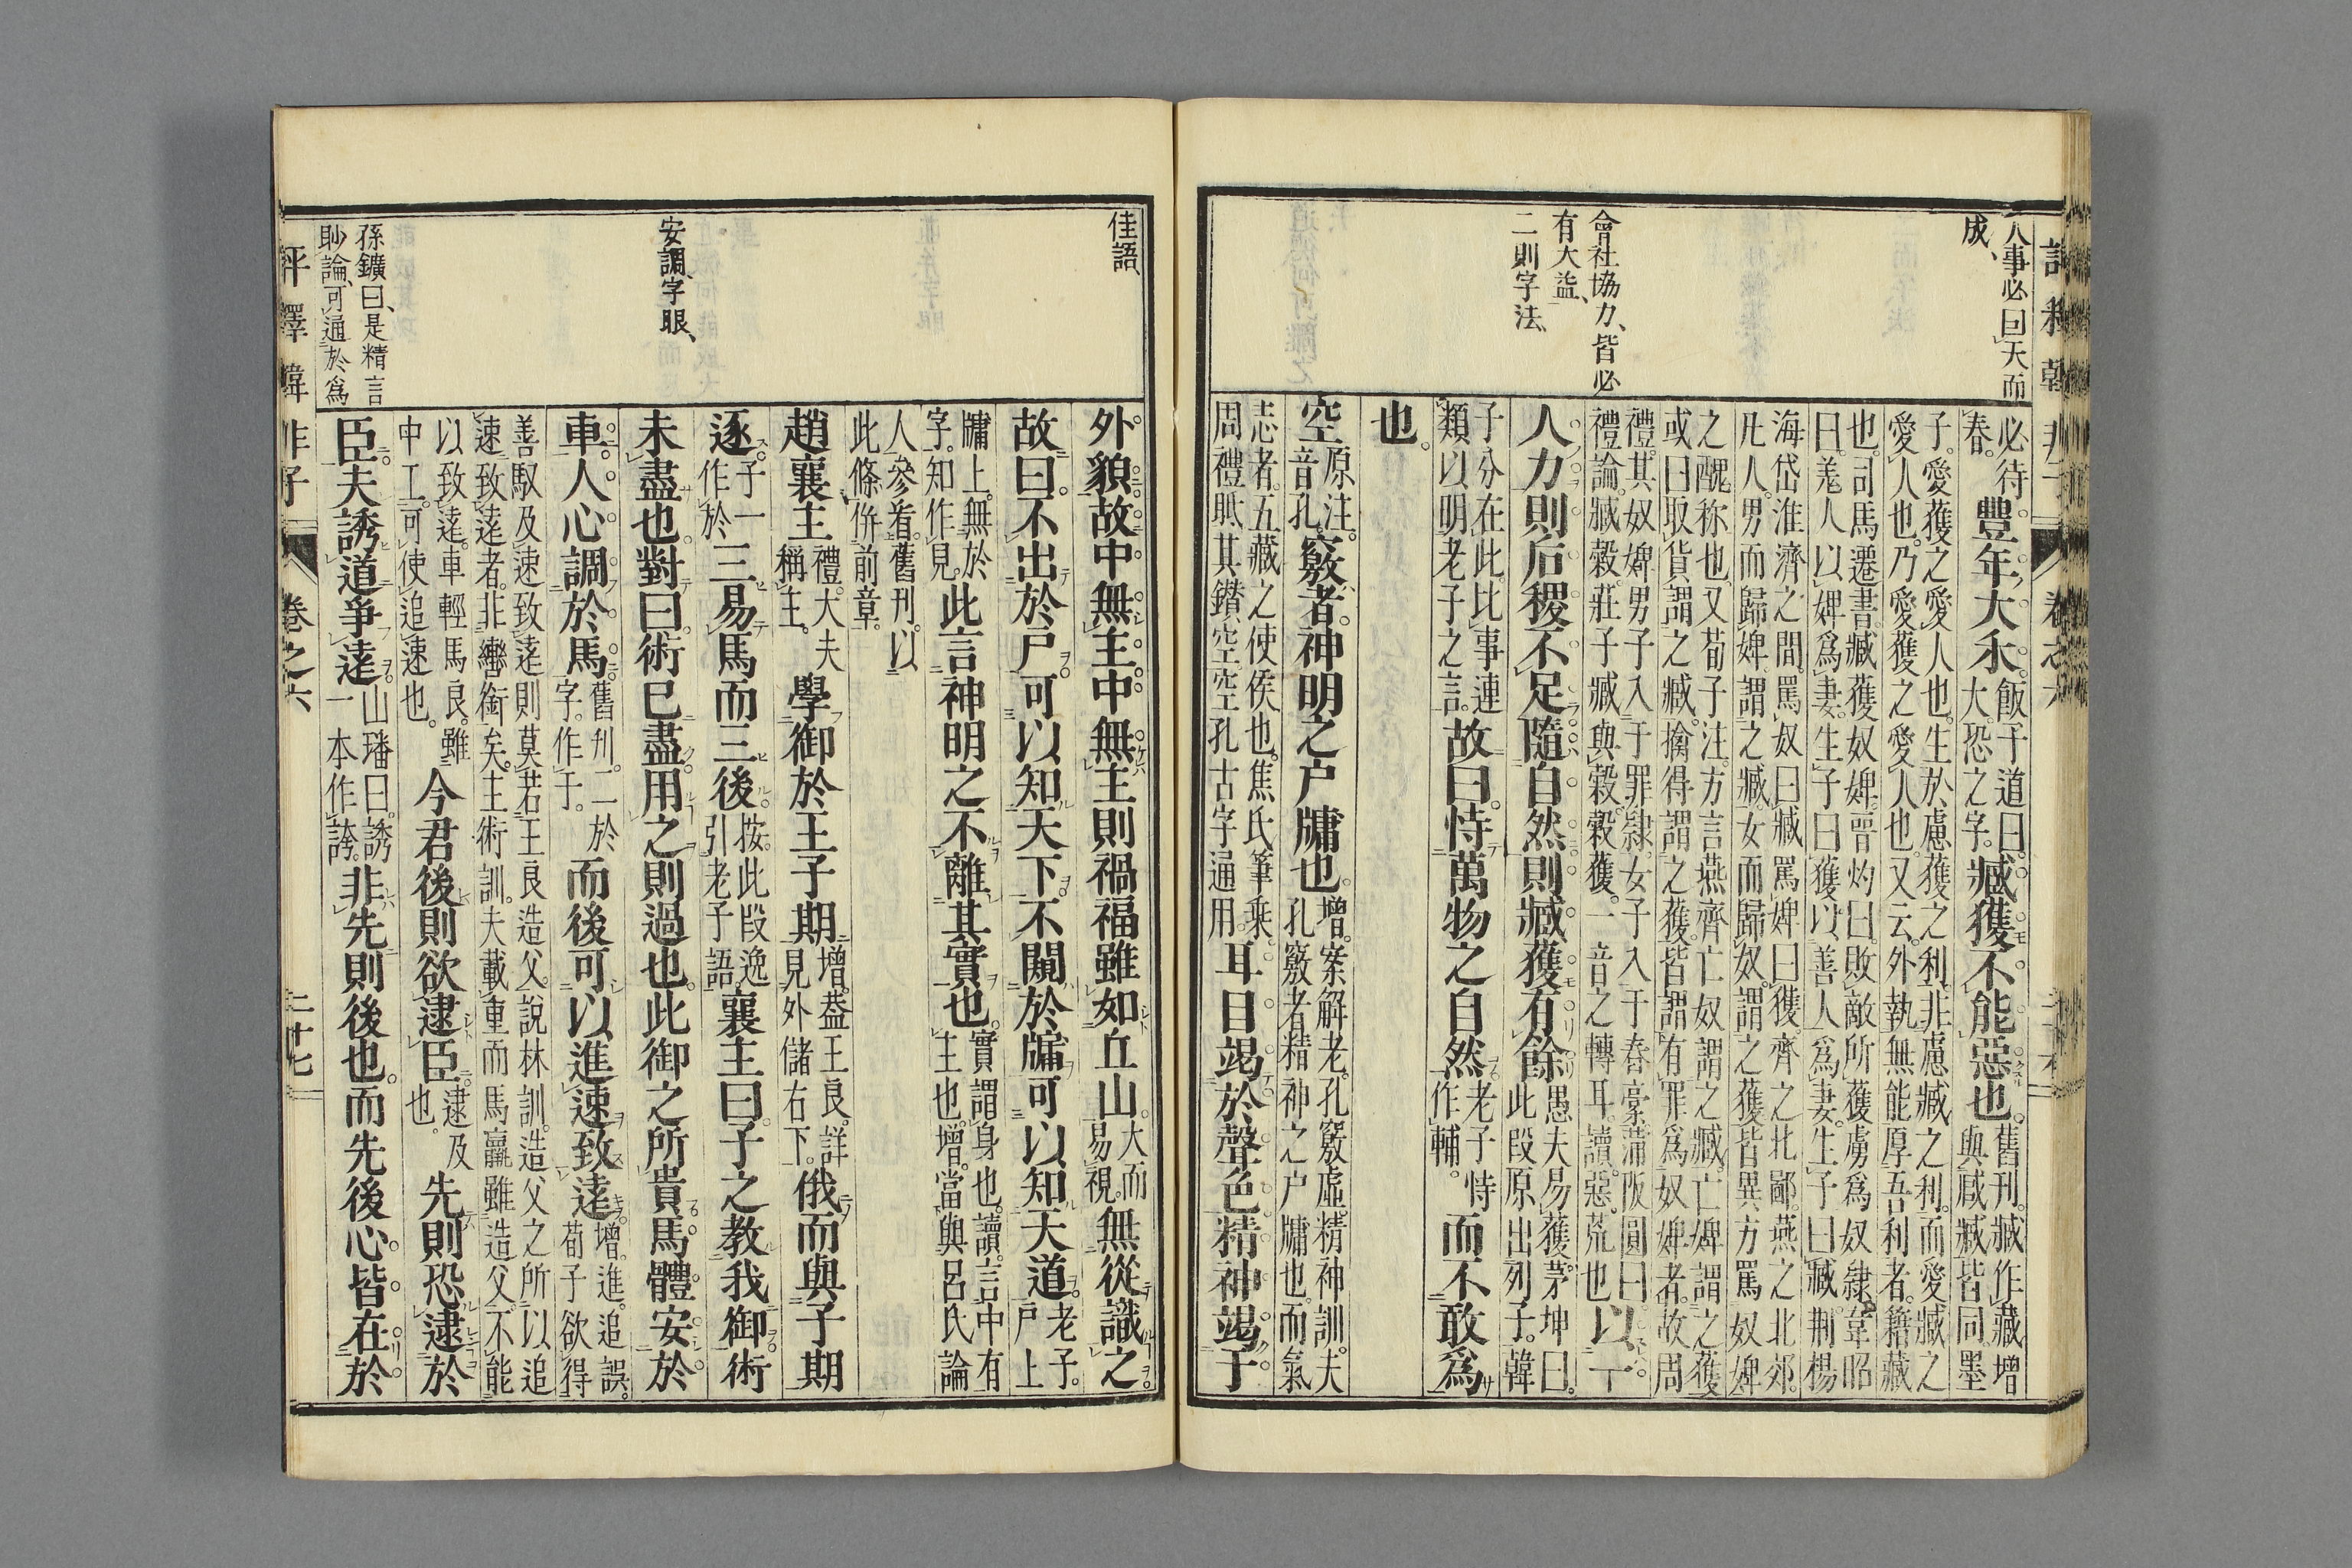 人事必曰天而
成、
會社協力、皆必
有大益、
二則字法、
必待
春。
豐年大禾。
飯子道曰。
大恐之字。
臧獲不能惡也。
舊刊。臧作藏。增
與臧臧皆同。墨
子。愛獲之愛人也。生於慮獲之利。非慮臧之利。而愛臧之
愛人也。乃愛獲之愛人也。又云。外執無能厚吾利者。籍藏
也。司馬遷書。臧獲奴婢。晋灼曰。敗敵所獲虜爲奴隸。韋昭
曰。羌人以婢爲妻。生子曰獲。以善人爲妻。生子曰臧。荆楊
海岱淮濟之間。罵奴曰臧。罵婢曰獲。齊之北鄙。燕之北郊。
凡人。男而歸婢。謂之臧。女而歸奴。謂之獲。皆異方罵奴婢
之醜称也。又荀子注。方言燕齊亡奴謂之臧。亡婢謂之獲。
或曰取貨謂之臧。擒得謂之獲。皆謂有罪爲奴婢者。故周
禮。其奴婢男子入于罪隸。女子入于舂槀。蒲阪圓曰
禮論。臧穀。莊子臧與穀。穀獲。一音之轉耳。讀惡荒也
以一
人力則后稷不足隨自然則臧獲有餘
愚夫易獲。茅坤曰。
此段原出列子。韓
子分在此。比事連
類。以明老子之言。
故曰。恃萬物之自然
老子恃
作輔。
而不敢爲
也。
空
原注。
音孔
竅者。神明之户牖也。
增。案解老。孔竅虛。精神訓。夫
孔竅者精神之户牖也。而氣
志者。五藏之使侯也。焦氏筆乗。
周禮眡其鑽空空孔古字通用。
耳目竭於聲色。精神竭于
佳語、
安調、字眼、
孫鑛曰、是精言
眇論、可通於爲
外貌。故中無主。中無主則禍福雖如丘山。
大而
易視。
無從識之
故曰。不出於户。可以知天下。不闚於牖。可以知天道。
老子。
户上
牖上。無於
字。知作見。
此言神明之不離其實也。
實謂身也。讀。言中有
主也。增。當與呂氏論
人參看。舊刊。以
此條併前章。
趙襄主
禮。大夫
稱主。
學御於王子期。
增。蓋王良。詳
見外儲右下。
俄而與子期
逐。
子一
作於
三易馬而三後。
按。此段逸
引老子語。
襄主曰。子之教我御。術
未盡也。對曰。術已盡。用之則過也。此御之所貴。馬體安於
車。人心調於馬。
舊刋。二於
字。作于。
而後可以進速致遠。
增。進。追誤。
荀子欲得
善馭及速致遠則莫若王良造父。說林訓。造父之所以追
速致遠者。非轡銜矣。主術訓。夫載重而馬羸雖造父不能
以致遠。車輕馬良。雖
中工。可使追速也。
今君後則欲逮臣。
逮及
也。
先則恐逮於
臣。夫誘道爭遠。
山璠曰。誘
一本作誇。
非先則後也。而先後心皆在於
評釋韓非子
卷之六
二十七